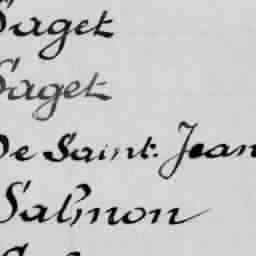 Saget
Saget
De Saint. Jean
Salmon